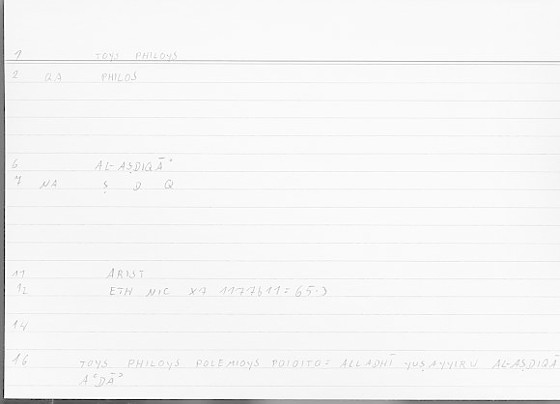 1 TOYS PHILOYS
2 QA PHILOS
6 AL-AṢDIQĀʾ
7 NA Ṣ D Q
11 ARIST
12 ETH NIC X7 1177b11 = 65.3
14
16 TOYS PHILOYS POLEMIOYS POIOITO = ALLADHĪ YUṢAYYIRU AL-AṢDIQĀ
AʿDĀʾ